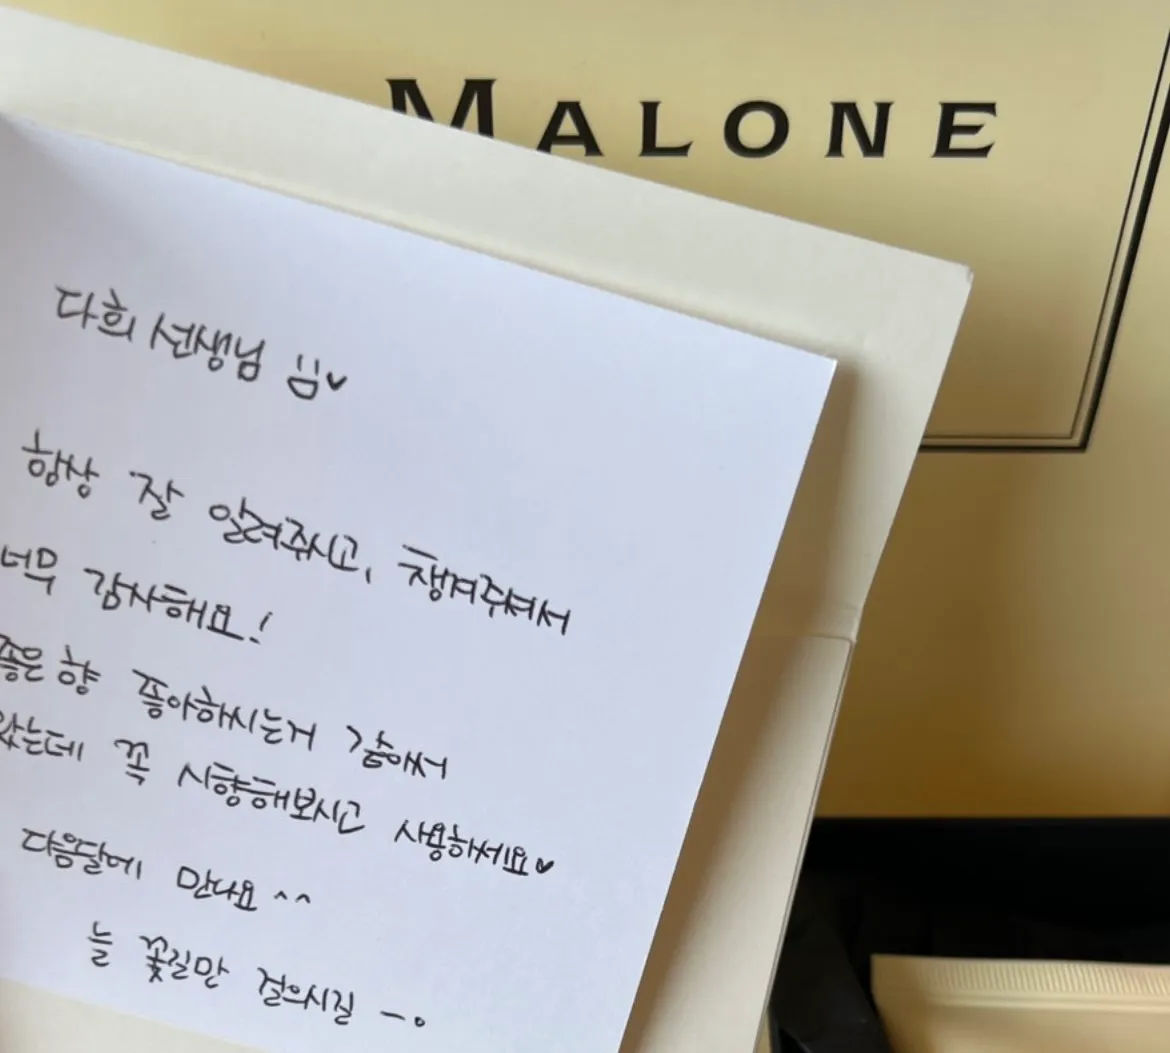 MALONE
다희 선생님 :)♥
항상 잘 알려주시고, 챙겨주셔서
너무 감사해요!
좋은 향 좋아하시는거 같아서
는데 꼭 시향해보시고 사용하세요♥
다음달에 만나요 ^^
늘 꽃길만 걸으시길 ㅡ。